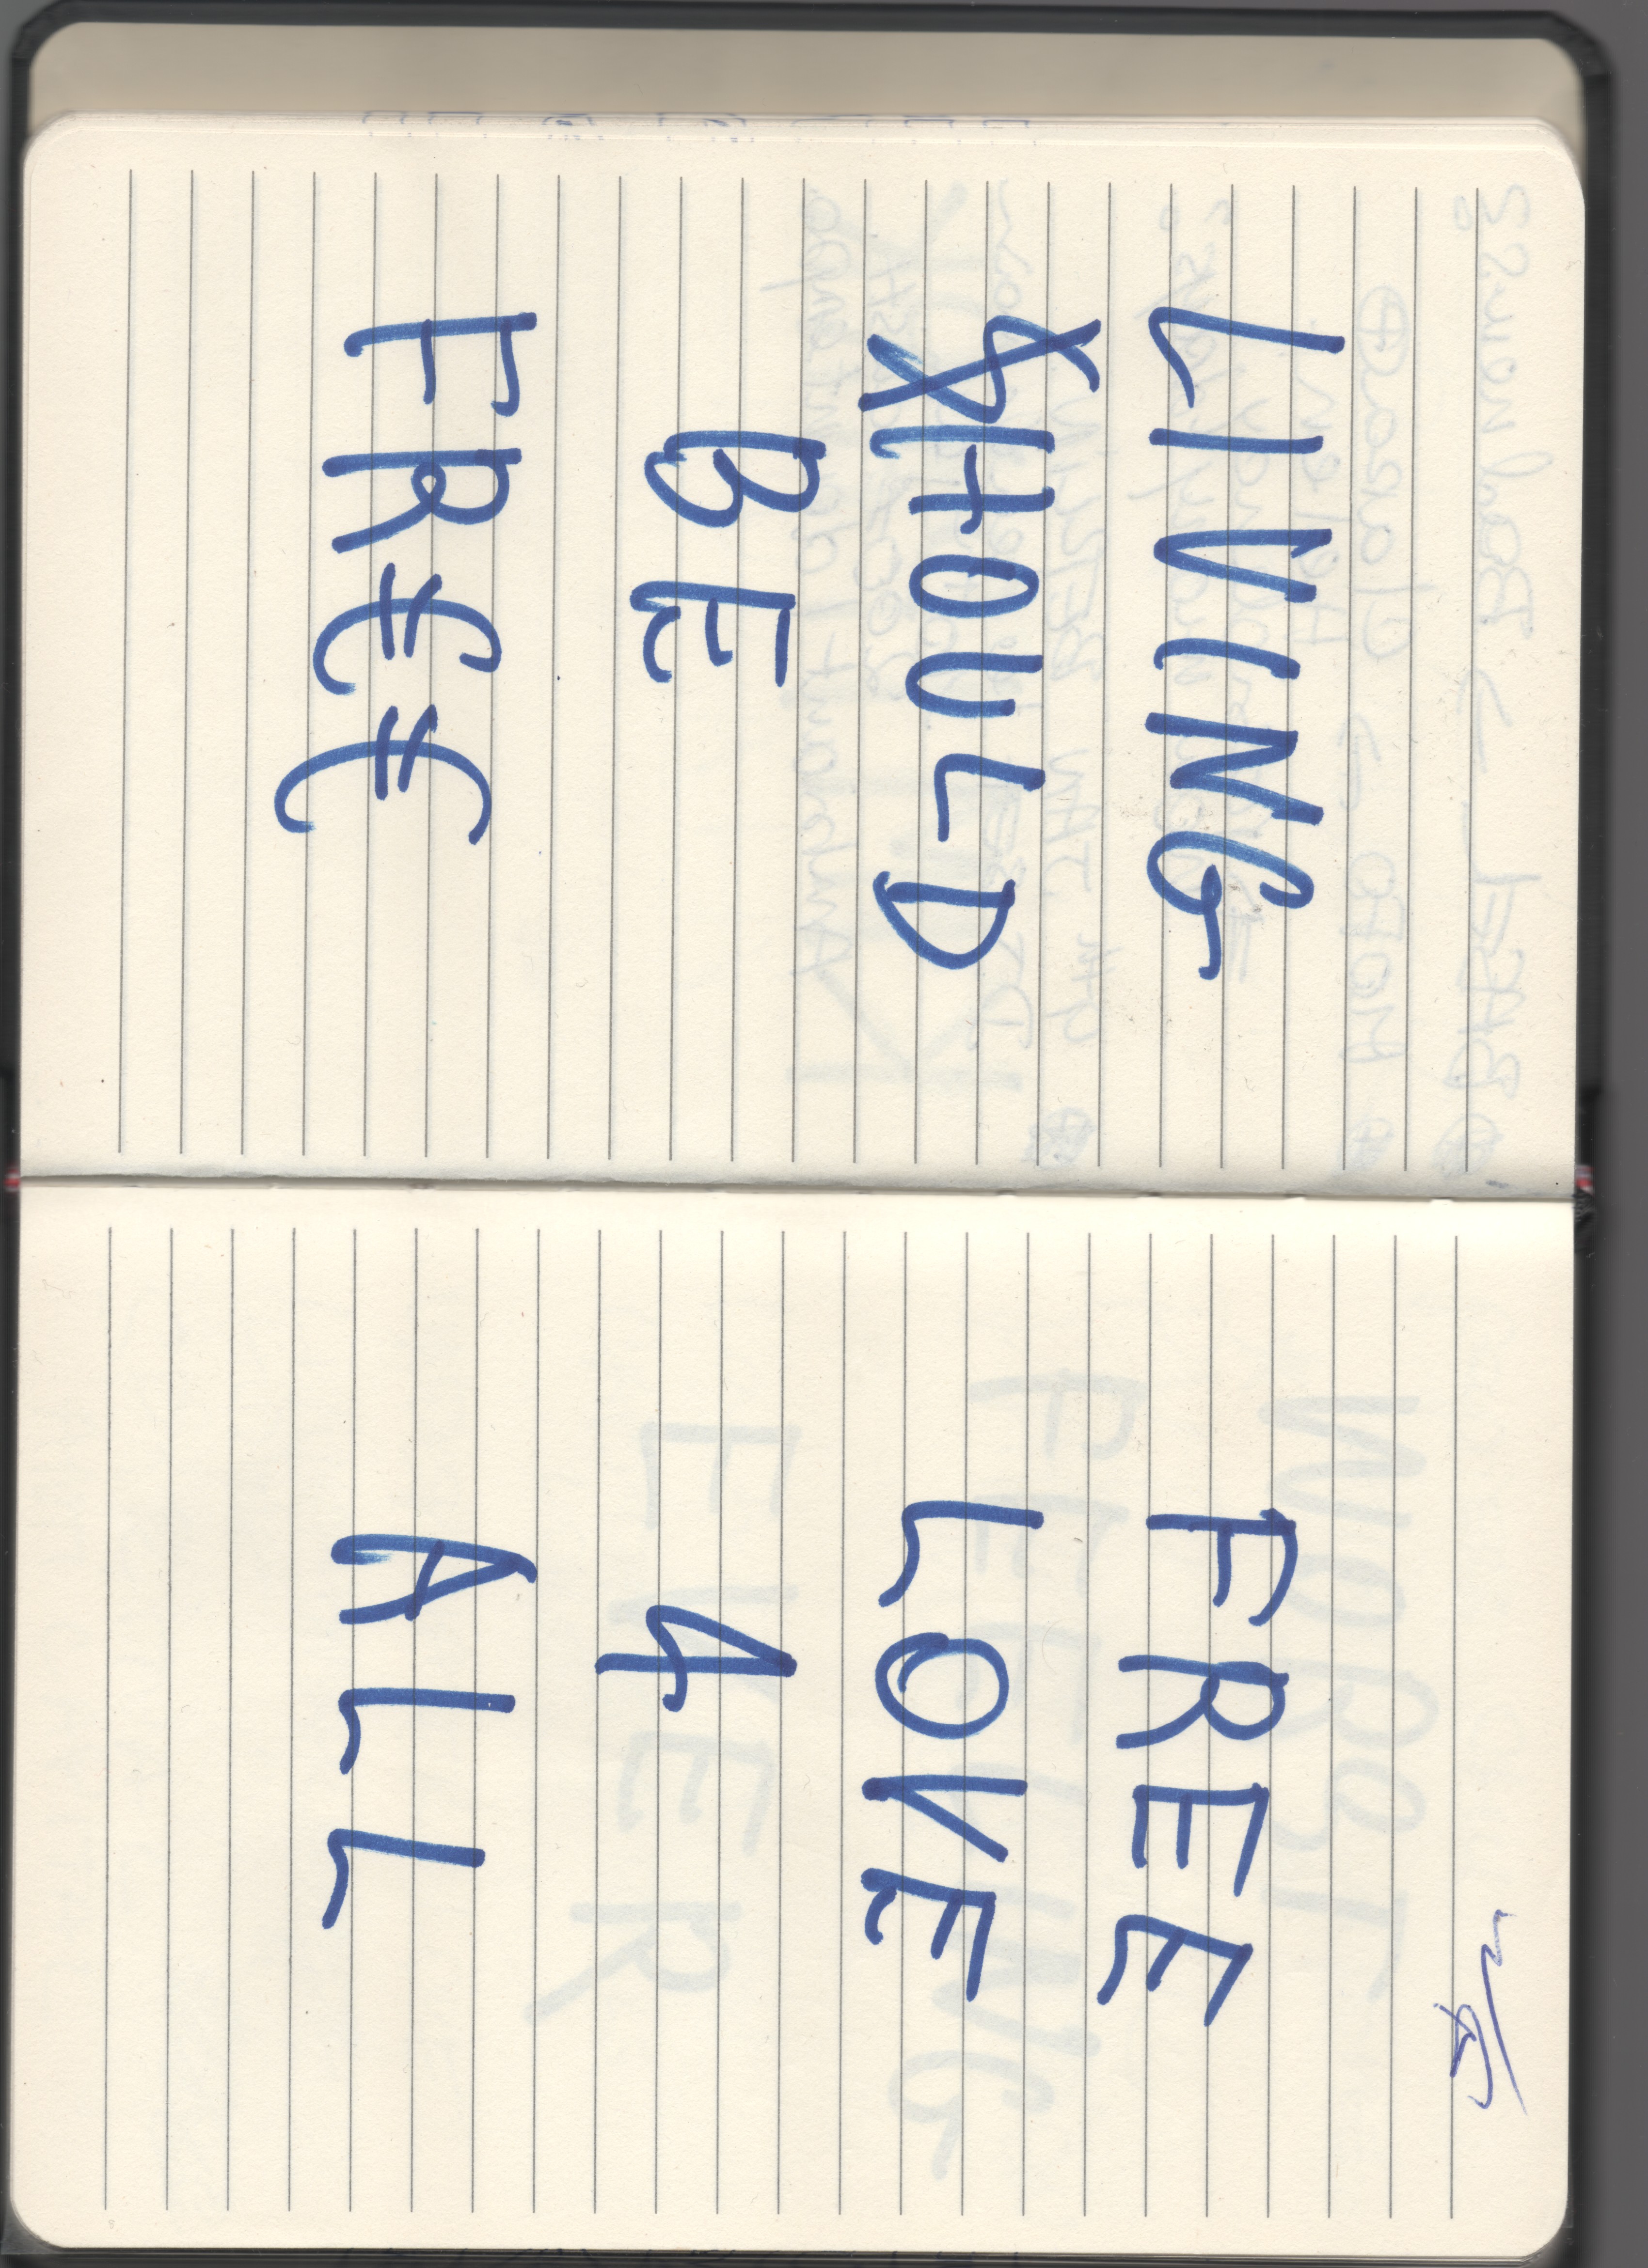 LIVING
SHOULD
BE
FR€€
FREE
LOVE
4
ALL